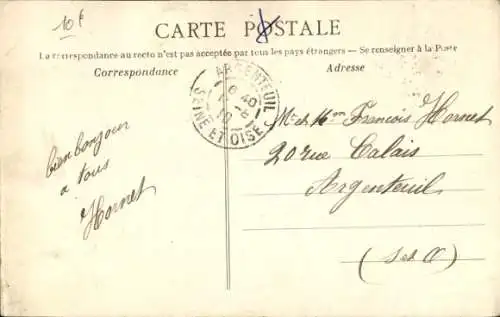 10 f
CARTE POSTALE
La correspondance au recto n'est pas acceptée par tous les pays étrangers — Se renseigner à la Poste
Correspondance
Adresse
ARGENTEUIL
SEINE ET OISE
bien bonjour
a tous
Hornet
Mr et Mme Francois Hornet
20 rue Calais
Argenteuil
(S et O)